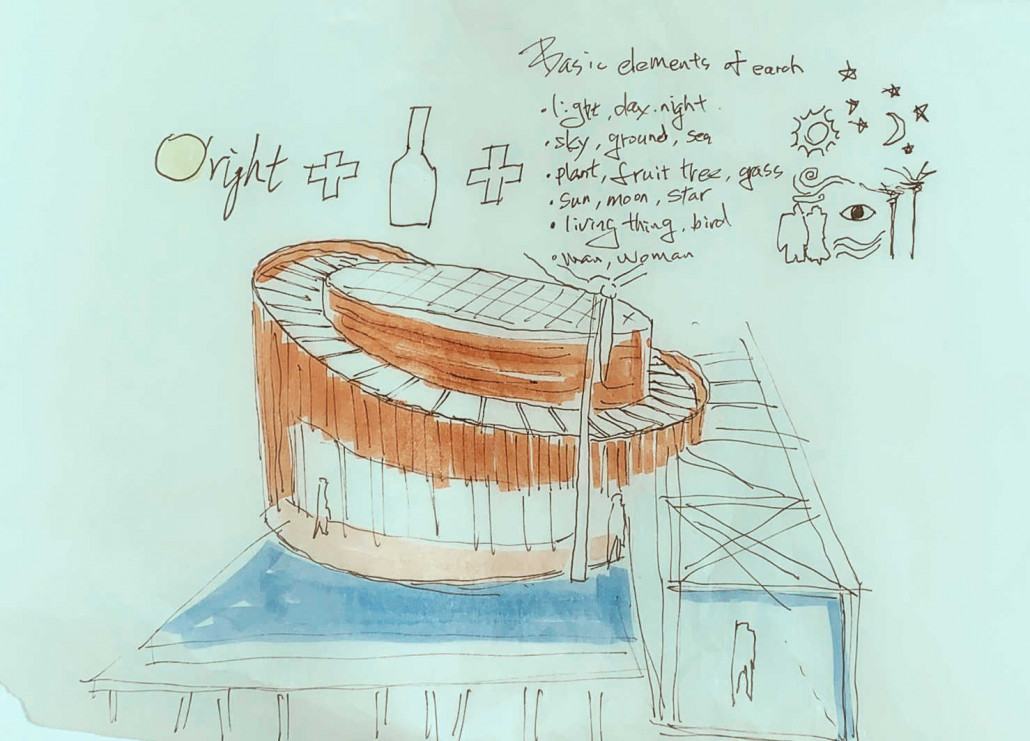 Oright + +
Basic elements of earth
• light, day. night.
• sky, ground, sea
• plant, fruit tree, grass
• sun, moon, star
• living thing, bird
• man, woman